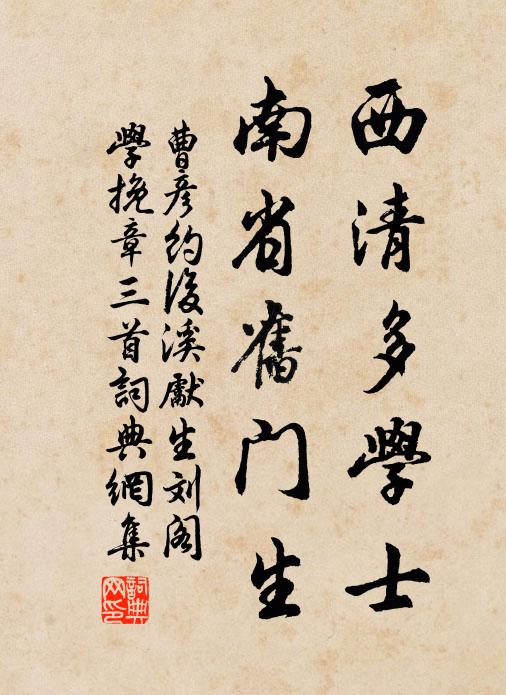 西清多學士
南省舊门生
曹彥約後溪獻生刘阁
學挽章三首詞典網集
詞典网印